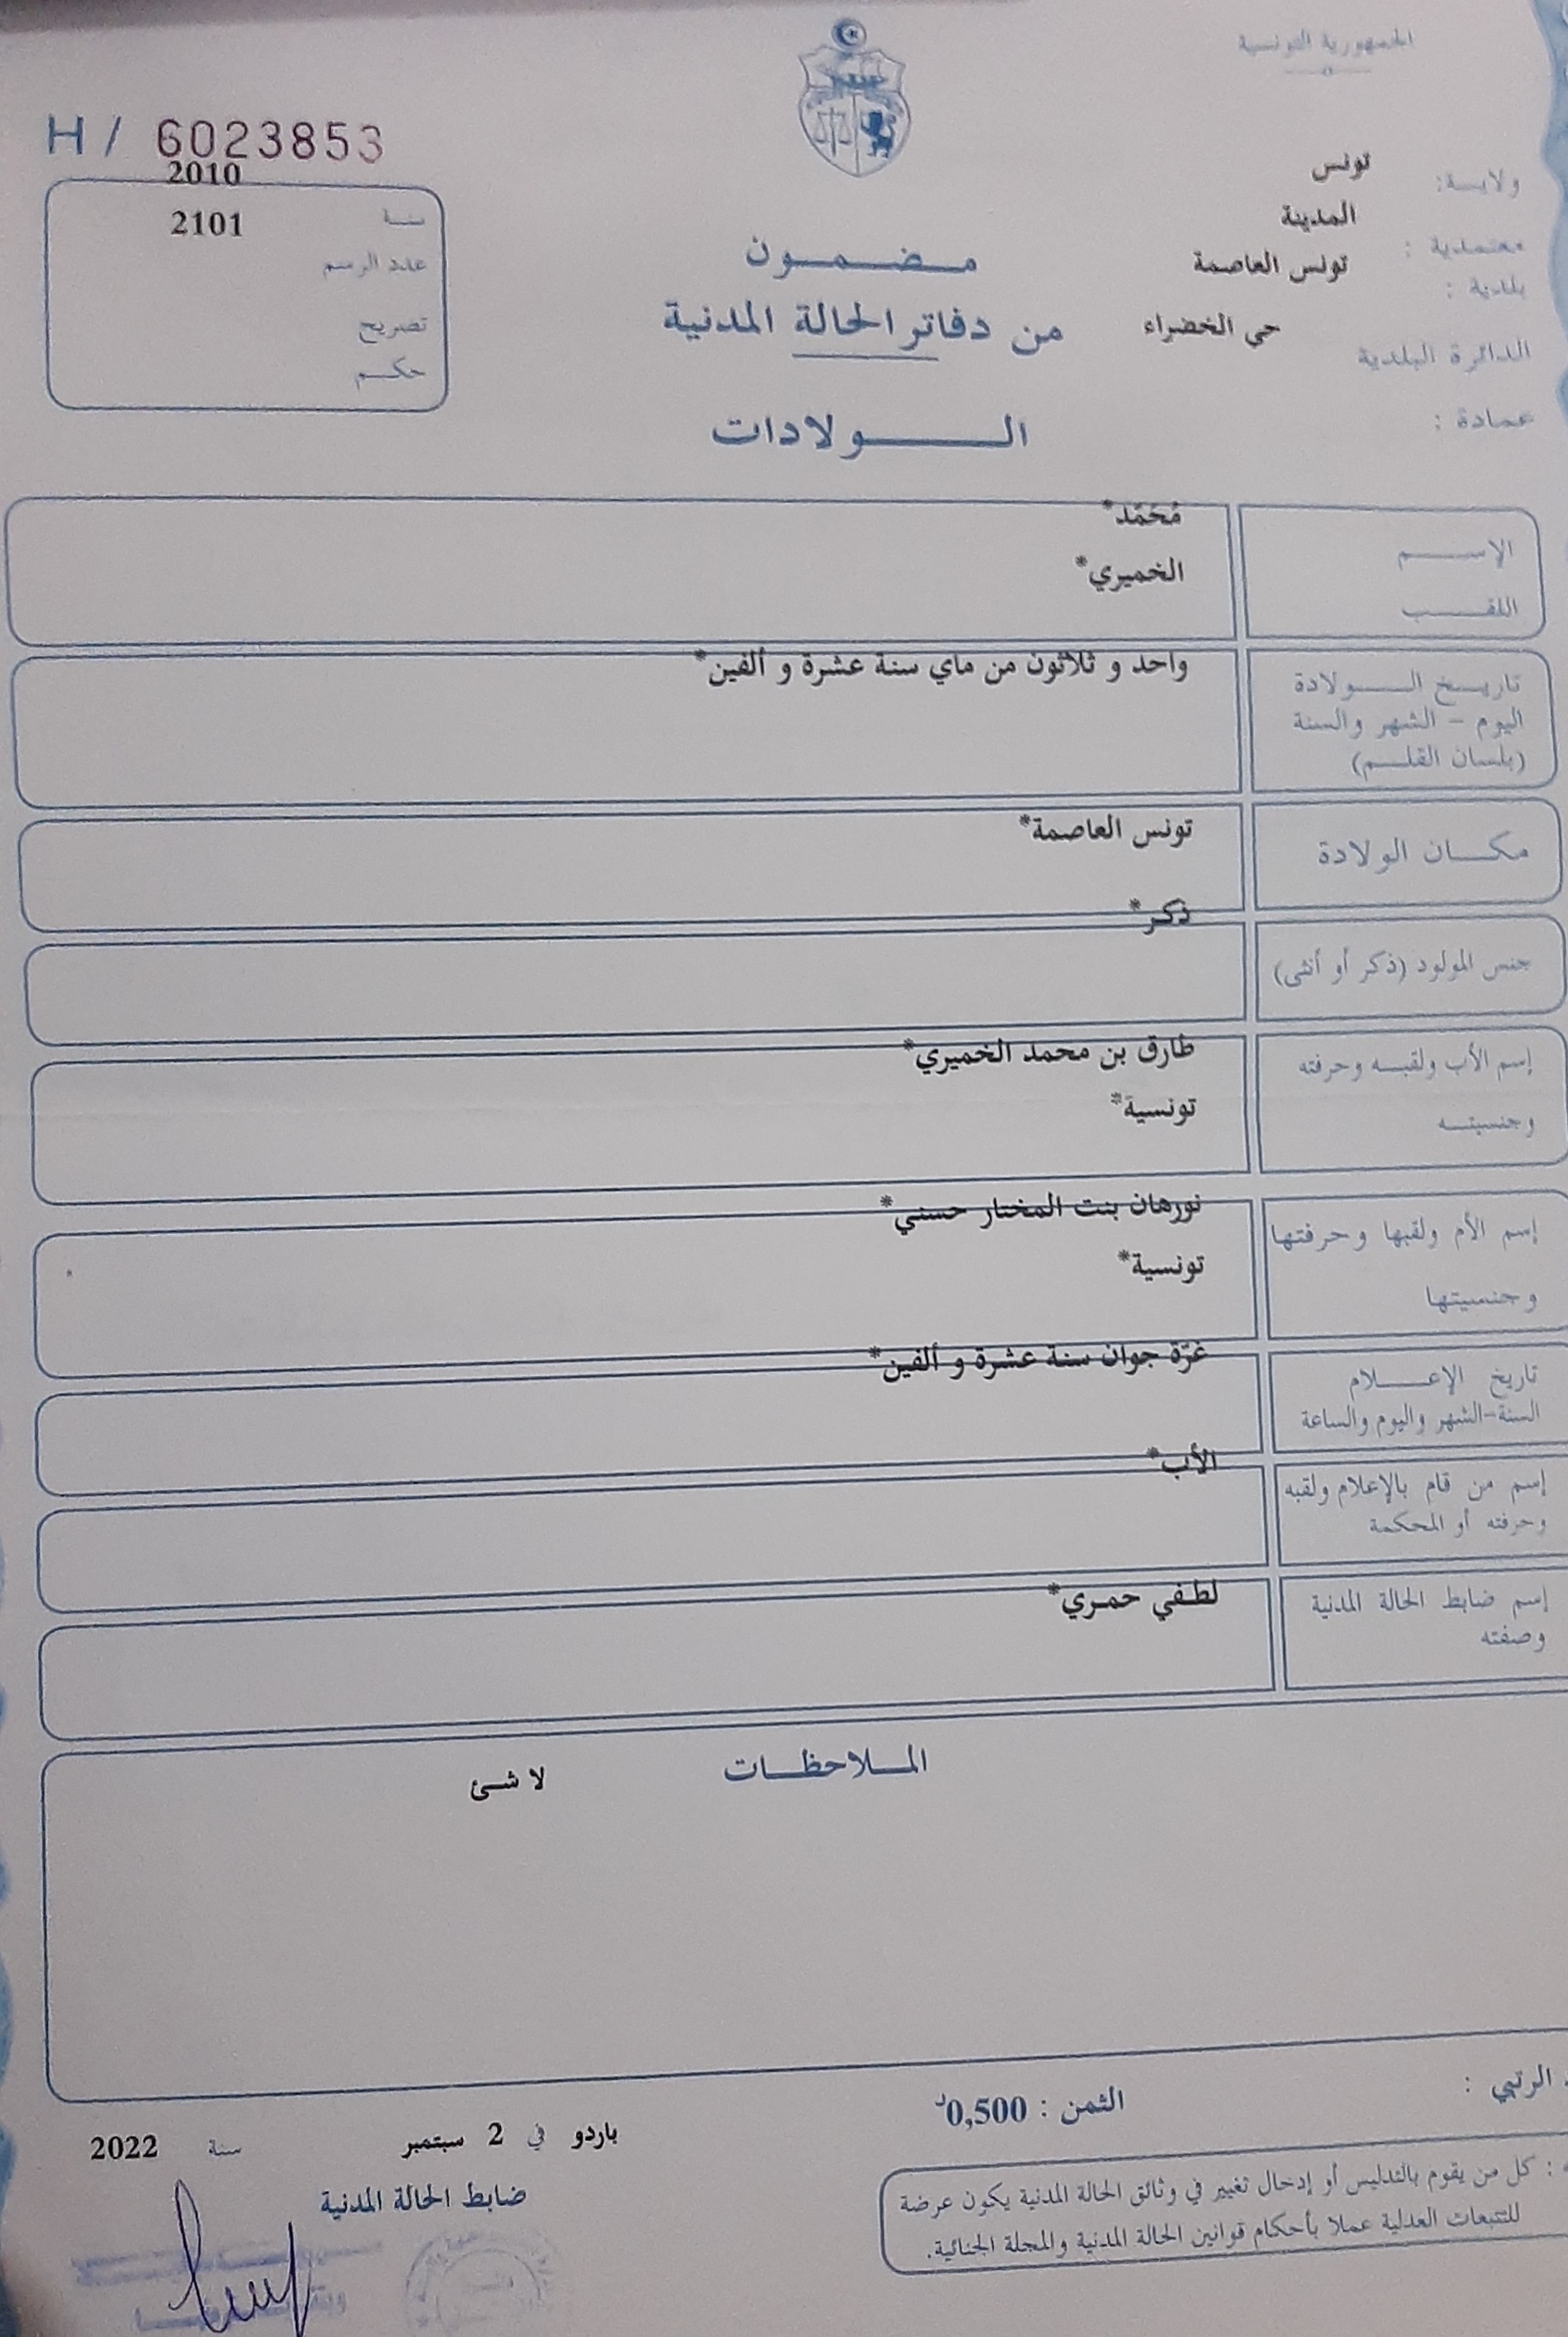 الجمهورية التونسية
H / 6023853
ولايـة: تونس
معتمدية : المدينة
بلدية : تونس العاصمة
الدائرة البلدية حي الخضراء
عمادة :
2010
سنة 2101
عدد الرسم
تصريح
حكم
مضمون
من دفاتر الحالة المدنية
الولادات
الإسم مُحَمّد*
اللقب الخميري*
تاريخ الولادة واحد و ثلاثون من ماي سنة عشرة و ألفين*
اليوم - الشهر والسنة
(بلسان القلم)
مكان الولادة تونس العاصمة*
ذكر*
جنس المولود (ذكر أو أنثى)
إسم الأب ولقبه وحرفته طارق بن محمد الخميري*
وجنسيته تونسية*
إسم الأم ولقبها وحرفتها نورهان بنت المختار حسني*
وجنسيتها تونسية*
غرّة جوان سنة عشرة و ألفين*
تاريخ الإعلام
السنة-الشهر واليوم والساعة
الأب*
إسم من قام بالإعلام ولقبه
وحرفته أو المحكمة
إسم ضابط الحالة المدنية لطفي حمري*
وصفته
الملاحظات لا شئ
الرتبي :
الثمن : 0,500د
باردو في 2 سبتمبر سنة 2022
ضابط الحالة المدنية
: كل من يقوم بالتدليس أو إدخال تغيير في وثائق الحالة المدنية يكون عرضة
للتتبعات العدلية عملا بأحكام قوانين الحالة المدنية والمجلة الجنائية.